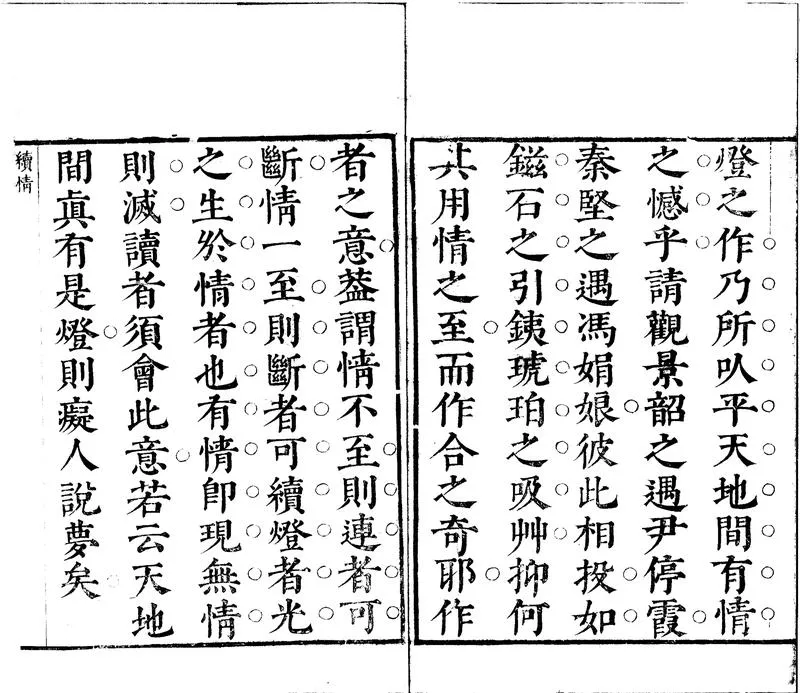 燈之作乃所㕥平天地間有情
之憾乎請觀景韶之遇尹停霞
秦堅之遇馮娟娘彼此相投如
鎡石之引銕琥珀之吸艸抑何
其用情之至而作合之奇耶作
者之意葢謂情不至則連者可
斷情一至則斷者可續燈者光
之生於情者也有情卽現無情
則滅讀者須會此意若云天地
間眞有是燈則癡人說夢矣
續情